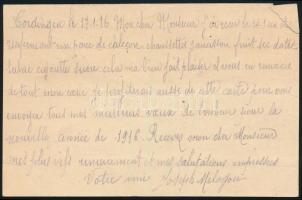 le 13.1.16. Mon cher Monsieur J'ai reçu le
renfermant un paire de caleçon chaussettes saucisson fruit sec datte
cigarette sucre cela ma bien fait plaisir et vous en remercie
de tout mon cœur je aussi de cette carte pour vous
envoyer tous mes meilleurs vœux de bonheur pour la
nouvelle année de 1916. Recevez mon cher Monsieur
mes plus vifs remerciement et mes salutations empressées
Votre ami Joseph